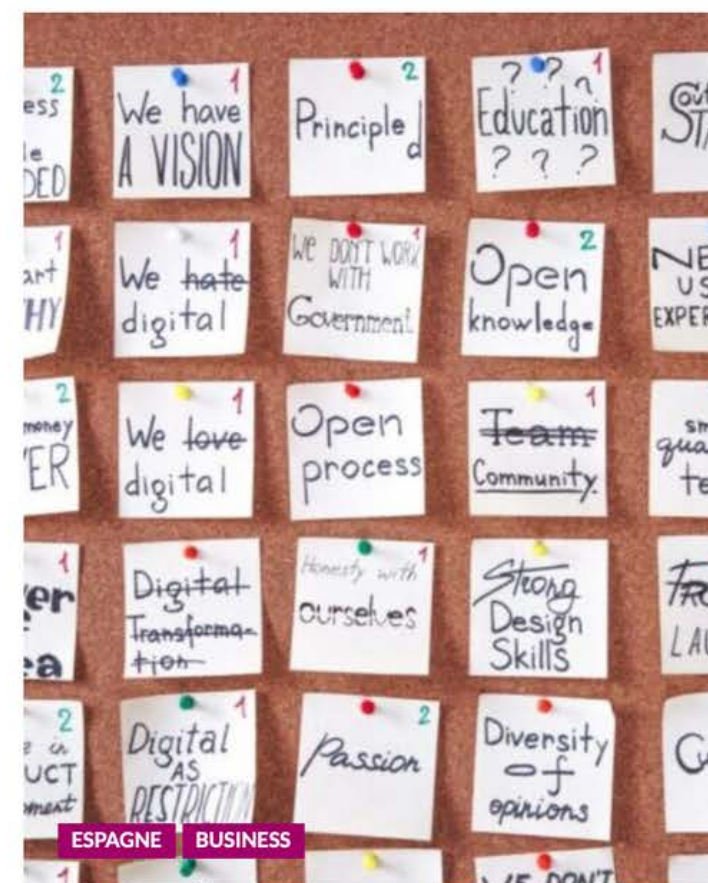 2
ess
le
DED
1
We have
A VISION
2
Principled
1
? ? ?
Education
? ? ?
1
art
HY
1
We hate
digital
1
WE DON'T WORK
WITH
Government
2
Open
knowledge
2
money
ER
1
We love
digital
Open
process
1
Team
Community
1
er
ea
Digital
Transforma-
tion
1
Honesty with
ourselves
Strong
Design
Skills
2
in
UCT
ment
1
Digital
AS
RESTRICTION
2
Passion
Diversity
of
opinions
ESPAGNE BUSINESS
1
WE DON'T